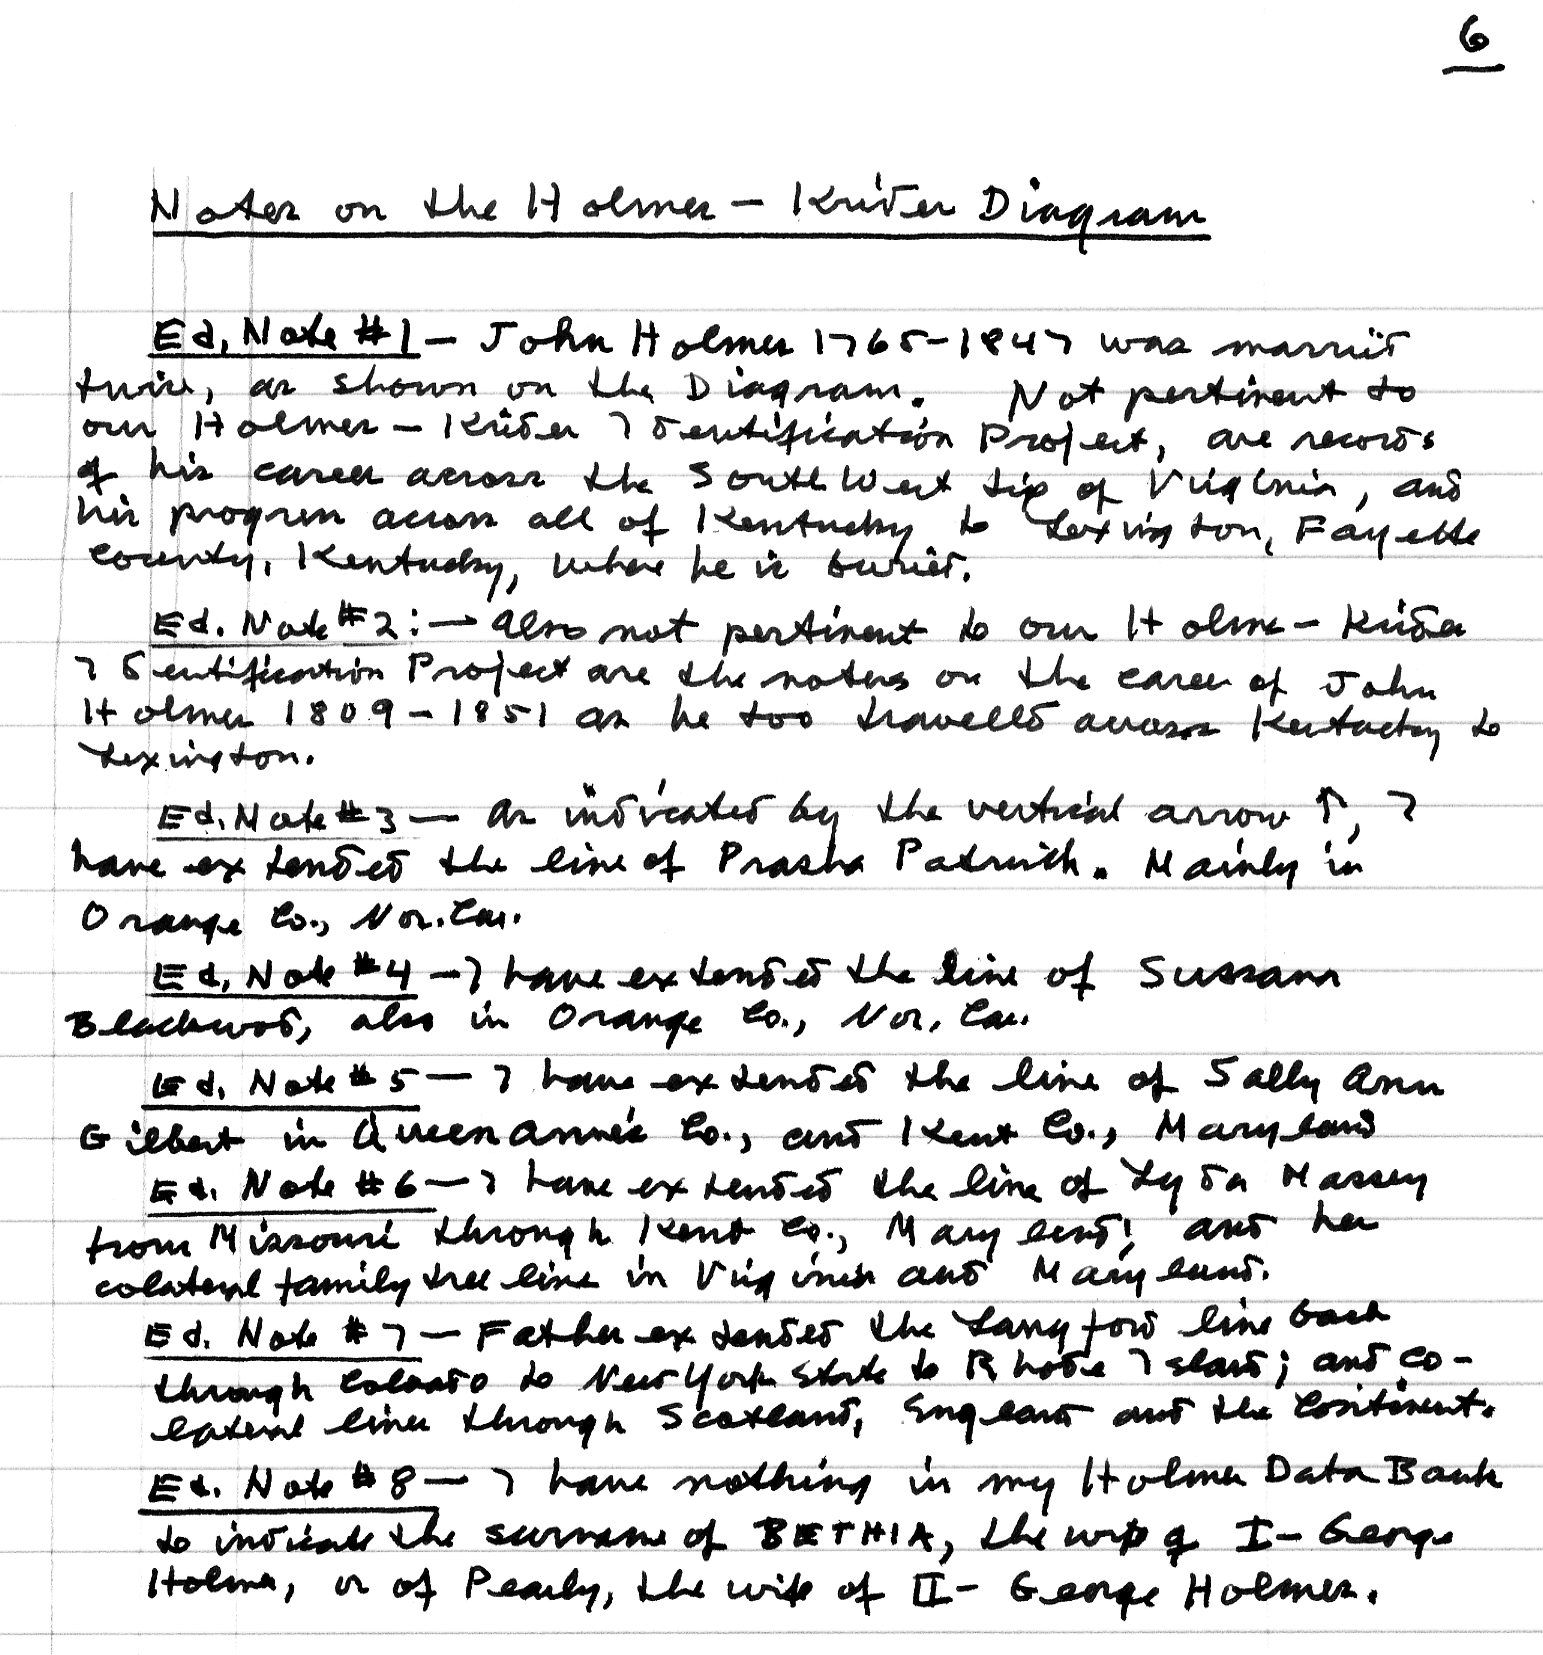 6
Notes on the Holmes - Krider Diagram
Ed. Note #1 - John Holmes 1765-1847 was married
twice, as shown on the Diagram. Not pertinent to
our Holmes - Krider Identification Project, are records
of his career across the South West tip of Virginia, and
his progress across all of Kentucky to Lexington, Fayette
County, Kentucky, where he is buried.
Ed. Note #2: - Also not pertinent to our Holmes - Krider
Identification Project are the notes on the career of John
Holmes 1809-1851 as he too travelled across Kentucky to
Lexington.
Ed. Note #3 - As indicated by the vertical arrow ↑, I
have extended the line of Prasha . Mainly in
Orange Co., Nor. Car.
Ed. Note #4 - I have extended the line of Sussana
Blackwood, also in Orange Co., Nor. Car.
Ed. Note #5 - I have extended the line of Sally Ann
Gilbert in Queen Anne's Co., and Kent Co., Maryland
Ed. Note #6 - I have extended the line of Lyda Massey
from Missouri through Kent Co., Maryland; and her
colateral family tree line in Virginia and Maryland.
Ed. Note #7 - Father extended the Langford line back
through Colorado to New York State to Rhode Island; and co-
lateral lines through Scotland, England and the Continent.
Ed. Note #8 - I have nothing in my Holmes Data Bank
to indicate the surname of BETHIA, the wife of I - George
Holmes, or of Pearly, the wife of II - George Holmes.